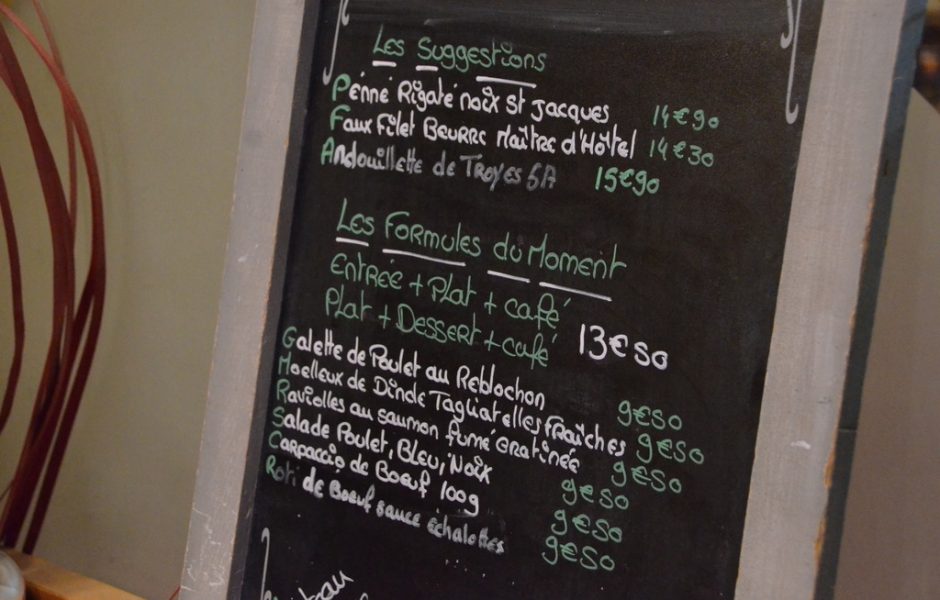 Les Suggestions
Penné Rigaté noix St Jacques 14€90
Faux Filet Beurre Maître d'Hôtel 14€30
Andouillette de Troyes 5A 15€90
Les Formules du Moment
Entrée + Plat + café
Plat + Dessert + café 13€50
Galette de Poulet au Reblochon 9€50
Moelleux de Dinde Tagliatelles Fraîches 9€50
Raviolles au saumon fumé Gratinée 9€50
Salade Poulet, Bleu, Noix 9€50
Carpaccio de Boeuf 100g 9€50
Roti de Boeuf sauce échalottes 9€50